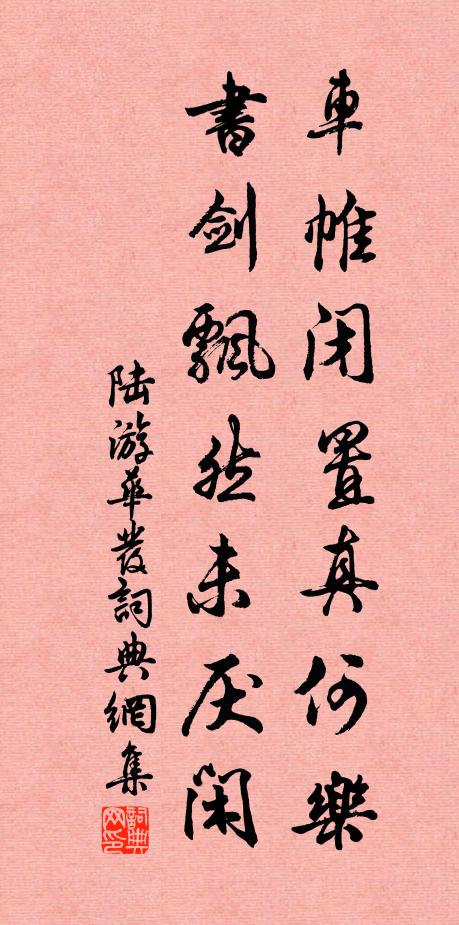 車帷闭置真何樂
書劍飄然未厌閑
陆游華發詞典網集
詞典网印